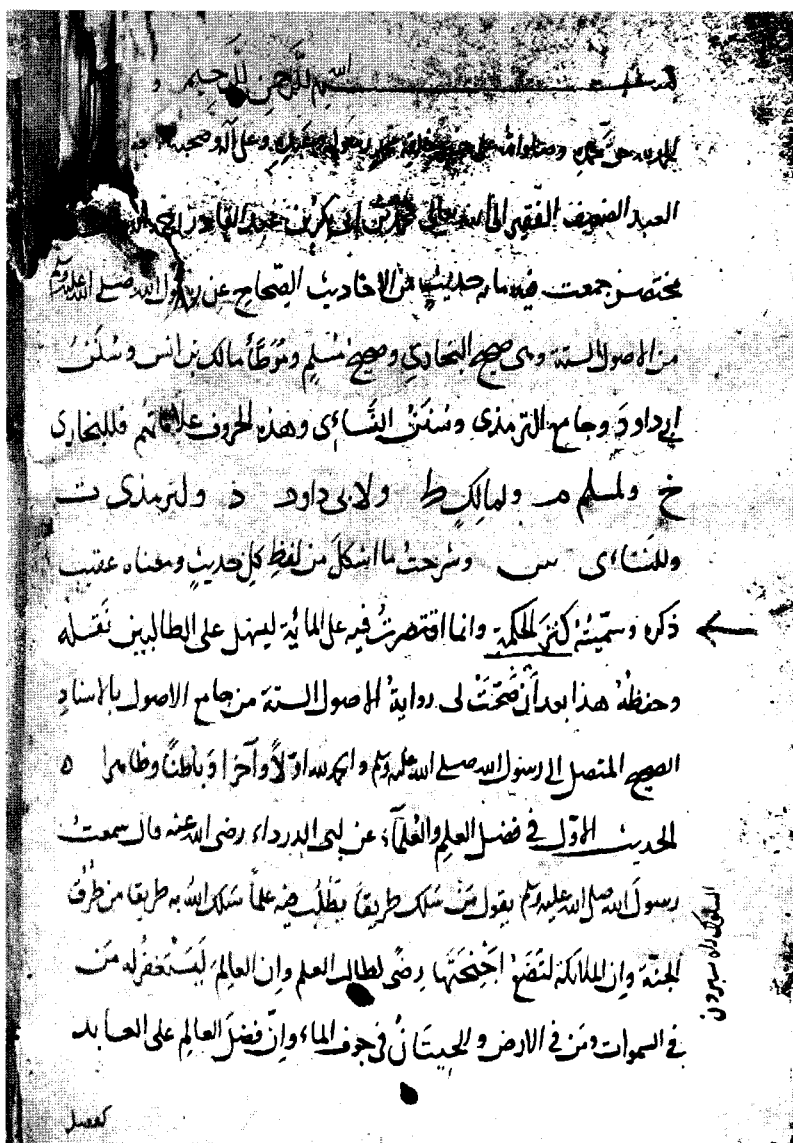 بسم الله الرحمن الرحيم
الحمد لله حق حمده وصلوات الله على رسوله وعلى آله وصحبه
العبد الضعيف الفقير الى الله تعالى محمد بن ابى بكر بن عبد القادر الرازى
مختصر جمعت فيه مايه حديث من الاحاديث الصحاح عن رسول الله صلى الله عليه وسلم
من الاصول الستة وهى صحيح البخاري وصحيح مسلم وموطأ مالك بن انس وسنن
ابى داود وجامع الترمذى وسنن النسائى وهذه الحروف علاماتهم فللبخارى
خ ولمسلم م ولمالك ط ولابى داود د ولترمذى ت
وللنسائى س وشرحت ما اشكل من لفظ كل حديث ومعناه عقيب
ذكره وسميته كنز الحكمة وانما اقتصرت فيه على المائية ليسهل على الطالبين نقله
وحفظه هذا بعد أن صحت لى رواية الاصول الستة من جامع الاصول بالاسناد
الصحيح المتصل الى رسول الله صلى الله عليه وسلم والحمد لله اولاً وآخرا وباطنًا وظاهرا ه
الحديث الاوّل فى فضل العلم والعلمآء عن ابى الدرداء رضى الله عنه قال سمعت
رسول الله صلى الله عليه وسلم يقول من سلك طريقاً يطلب فيه علماً سلك الله به طريقا من طرق
الجنّة وان الملائكة لتضع اجنحتها رضًى لطالب العلم وان العالم ليستغفر له من
فى السموات ومن فى الارض والحيتان فى جوف الماء وانّ فضل العالم على العابد
كفضل
السلوك